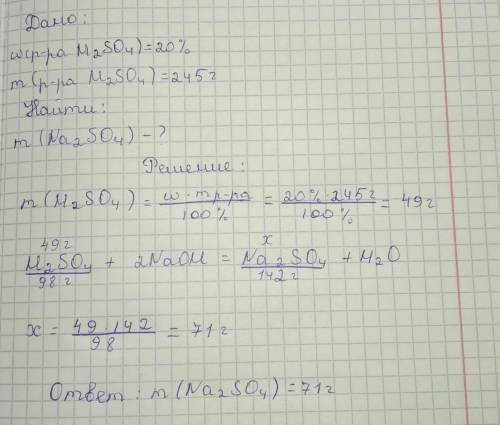 Дано:
w(р-ра H₂SO₄)=20%
m(р-ра H₂SO₄)=245г
Найти:
m(Na₂SO₄)-?
Решение:
m(H₂SO₄) = w·mр-ра / 100% = 20%·245г / 100% = 49г
49г x
H₂SO₄ + 2NaOH = Na₂SO₄ + H₂O
98г 142г
x = 49·142 / 98 = 71г
Ответ: m(Na₂SO₄)=71г